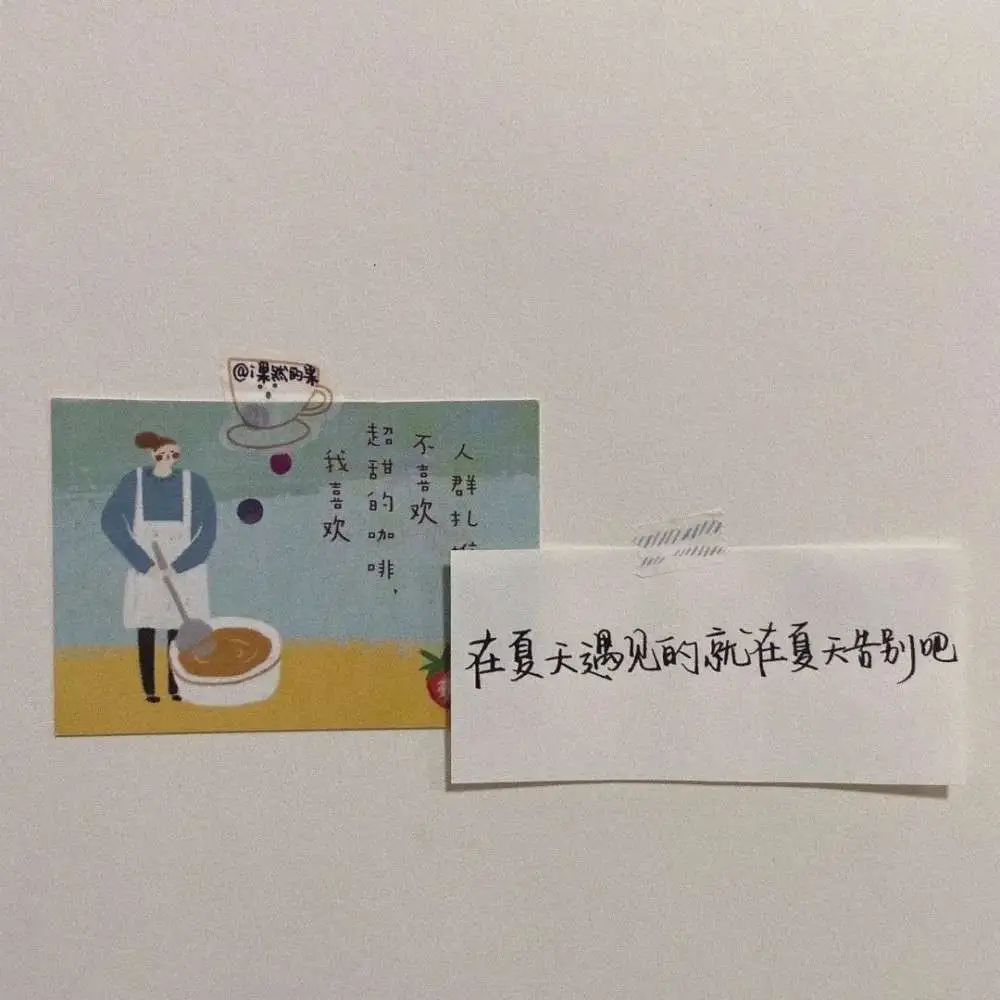 @i果然的果
人群扎堆
不喜欢
超甜的咖啡,
我喜欢
在夏天遇见的就在夏天告别吧